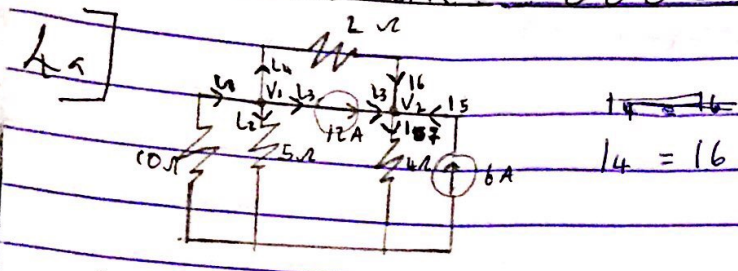 4a
2 Ω
I4 I6
V1 I3 I3 V2 I5
I2 12A I7
10Ω 5Ω 4Ω 6A
I4 = I6